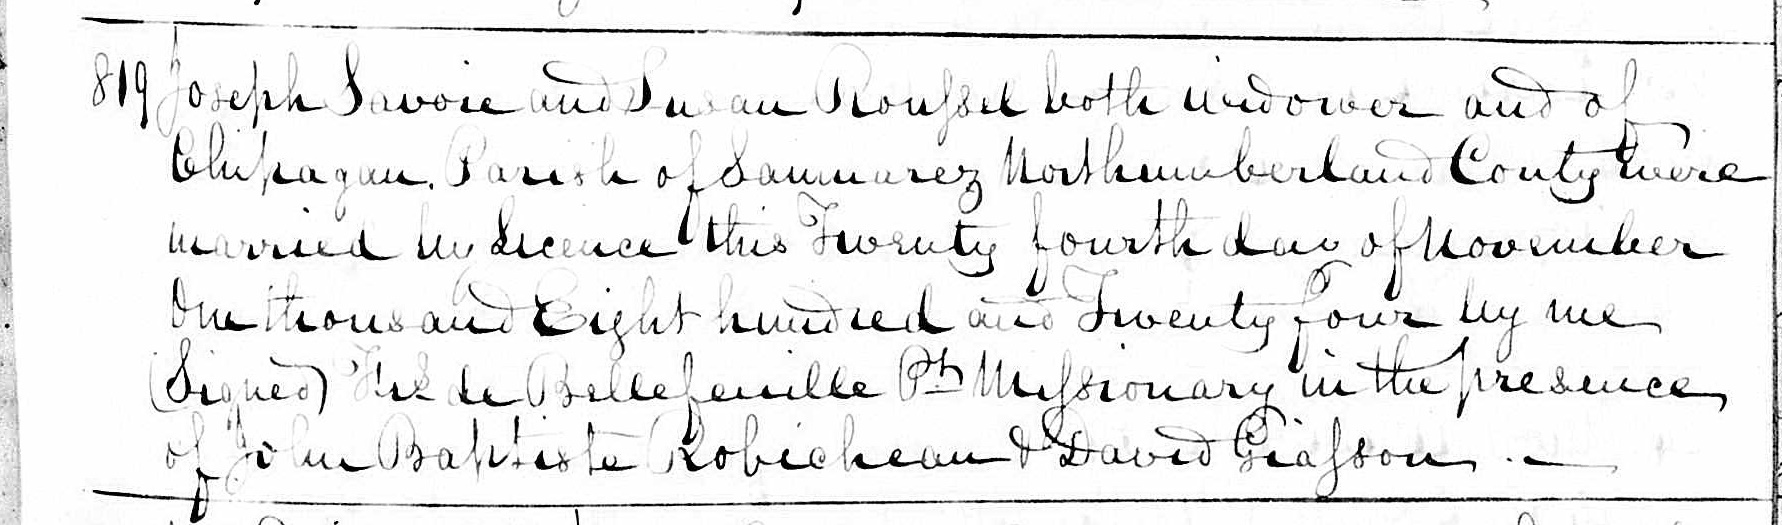 819 Joseph Savoie and Susan Roussel both widower and of
Chipagan. Parish of Saumarez Northumberland Conty were
married by Licence this Twenty fourth day of November
One thousand Eight hundred and Twenty four by me
(Signed) Frs de Bellefeuille Pt Missionary in the presence
of John Baptiste Robicheau & David Giasson . —